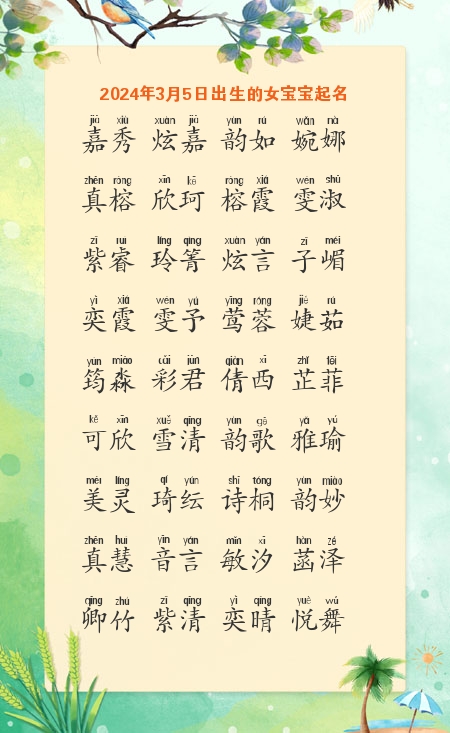 2024年3月5日出生的女宝宝起名
jiā xiù xuàn jiā yùn rú wǎn nà
嘉秀 炫嘉 韵如 婉娜
zhēn róng xīn kē róng xiá wén shū
真榕 欣珂 榕霞 雯淑
zǐ ruì líng qìng xuàn yán zǐ mèi
紫睿 玲箐 炫言 子嵋
yì xiá wén yú yīng róng jié rú
奕霞 雯予 莺蓉 婕茹
yún miǎo cǎi jūn qiàn xī zhǐ fēi
筠淼 彩君 倩西 芷菲
kě xīn xuě qīng yùn gē yǎ yú
可欣 雪清 韵歌 雅瑜
měi líng qí yún shī tóng yùn miào
美灵 琦纭 诗桐 韵妙
zhēn huì yīn yán mǐn xī hàn zé
真慧 音言 敏汐 菡泽
qīng zhú zǐ qīng yì qíng yuè wǔ
卿竹 紫清 奕晴 悦舞